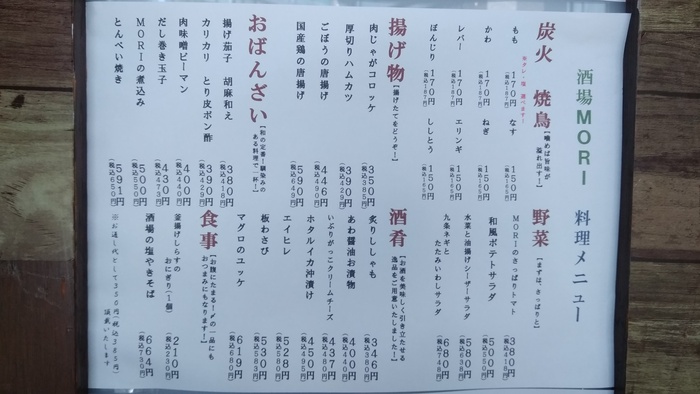 酒場MORI 料理メニュー
炭火 焼鳥
【噛めば旨味が
溢れ出す！】
※タレ・塩 選べます！
もも 170円 (税込187円)
なす 150円 (税込165円)
かわ 170円 (税込187円)
ねぎ 150円 (税込165円)
レバー 170円 (税込187円)
エリンギ 150円 (税込165円)
ぼんじり 170円 (税込187円)
ししとう 150円 (税込165円)
野菜
【まずは、さっぱりと】
MORIのさっぱりトマト 380円 (税込418円)
和風ポテトサラダ 500円 (税込550円)
水菜と油揚げシーザーサラダ 580円 (税込638円)
九条ネギと
たたみいわしサラダ 680円 (税込748円)
揚げ物
【揚げたてをどうぞ！】
肉じゃがコロッケ 350円
厚切りハムカツ 390円 (税込429円)
ごぼうの唐揚げ 446円 (税込490円)
国産鶏の唐揚げ 590円 (税込649円)
酒肴
【お酒を美味しく引き立たせる
逸品をご用意いたしました！】
炙りししゃも 346円 (税込380円)
あわ醤油お漬物 400円 (税込440円)
いぶりがっこクリームチーズ 437円 (税込480円)
ホタルイカ沖漬け 450円 (税込495円)
エイヒレ 528円
板わさび 530円 (税込583円)
マグロのユッケ 619円 (税込680円)
おばんざい
【和の定番！馴染みの
ある料理で一杯！】
揚げ茄子 胡麻和え 380円 (税込418円)
カリカリ とり皮ポン酢 390円 (税込429円)
肉味噌ピーマン 400円 (税込440円)
だし巻き玉子 430円 (税込473円)
MORIの煮込み 500円 (税込550円)
とんぺい焼き 591円 (税込650円)
食事
【お腹にたまる！〆の一品にも
おつまみにもなります！】
釜揚げしらすの
おにぎり(1個) 210円 (税込230円)
酒場の塩やきそば 664円 (税込730円)
※お通し代として350円(税込385円)
頂戴いたします